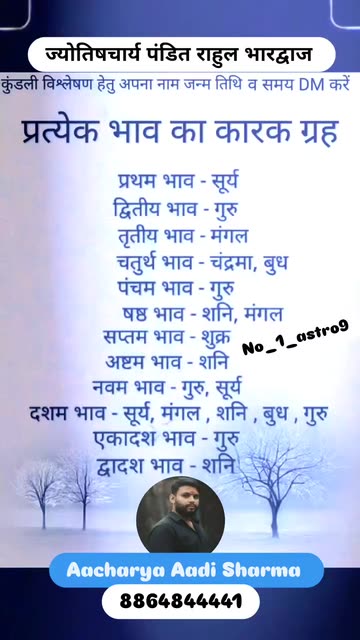 ज्योतिषचार्य पंडित राहुल भारद्वाज
कुंडली विश्लेषण हेतु अपना नाम जन्म तिथि व समय DM करें
प्रत्येक भाव का कारक ग्रह
प्रथम भाव - सूर्य
द्वितीय भाव - गुरु
तृतीय भाव - मंगल
चतुर्थ भाव - चंद्रमा, बुध
पंचम भाव - गुरु
षष्ठ भाव - शनि, मंगल
सप्तम भाव - शुक्र
No_1_astro9
अष्टम भाव - शनि
नवम भाव - गुरु, सूर्य
दशम भाव - सूर्य, मंगल , शनि , बुध , गुरु
एकादश भाव - गुरु
द्वादश भाव - शनि
Aacharya Aadi Sharma
8864844441